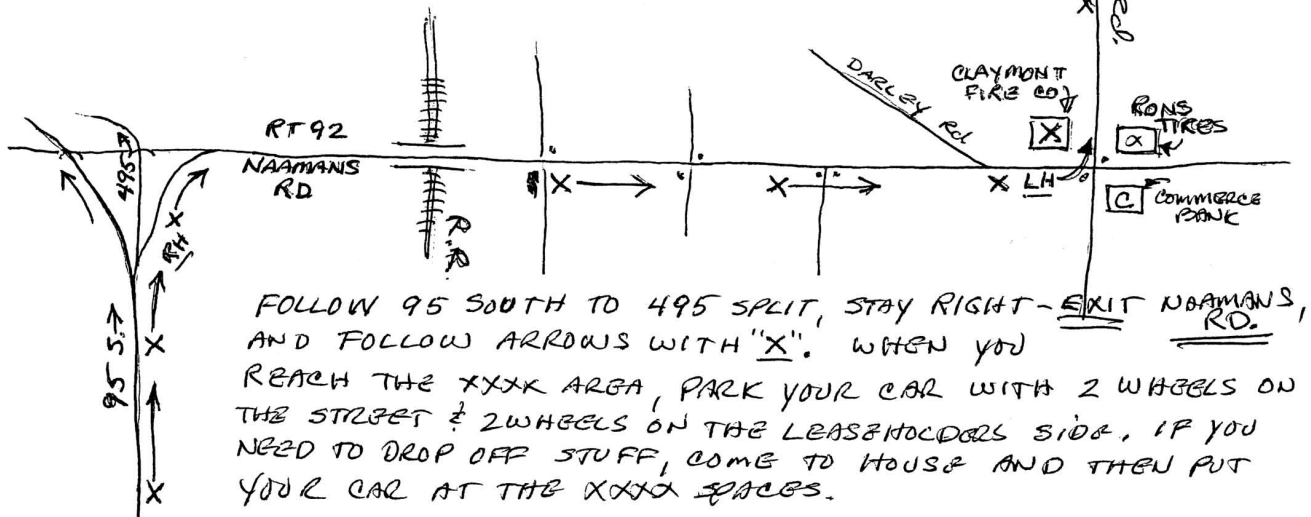 Rd.
CLAYMONT
FIRE CO
DARLEY Rd
RONS
TIRES
RT 92
NAAMANS
RD
495
X
α
X
X
X
LH
C
COMMERCE
BANK
RH X
R.R.
95 S.
X
X
FOLLOW 95 SOUTH TO 495 SPLIT, STAY RIGHT - EXIT NAAMANS,
RD.
AND FOLLOW ARROWS WITH "X". WHEN YOU
REACH THE XXXX AREA, PARK YOUR CAR WITH 2 WHEELS ON
THE STREET & 2 WHEELS ON THE LEASEHOLDERS SIDE. IF YOU
NEED TO DROP OFF STUFF, COME TO HOUSE AND THEN PUT
YOUR CAR AT THE XXXX SPACES.